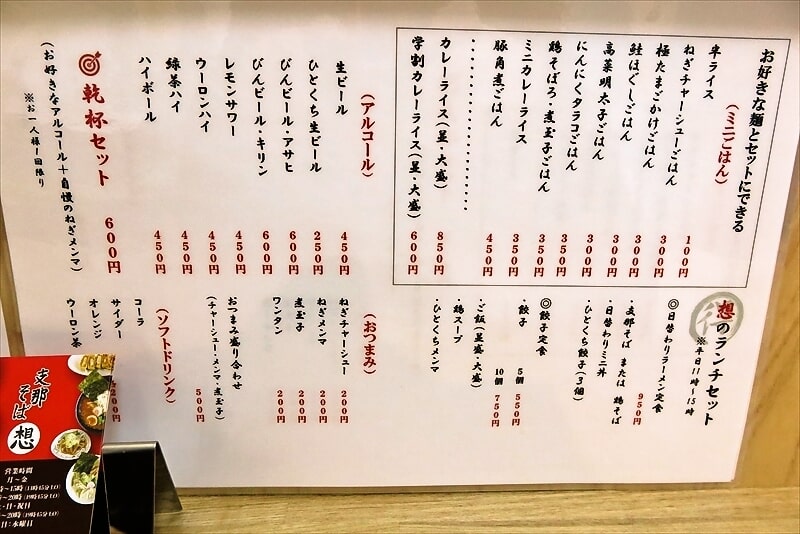 お好きな麺とセットにできる
(ミニごはん)
半ライス 100円
ねぎチャーシューごはん 300円
極たまごかけごはん 300円
鮭はぐしごはん 300円
高菜明太子ごはん 300円
にんにくタラコごはん 300円
鶏そぼろ・煮玉子ごはん 350円
ミニカレーライス 350円
豚角煮ごはん 450円
カレーライス(並・大盛) 850円
学割カレーライス(並・大盛) 600円
(アルコール)
生ビール 450円
ひとくち生ビール 250円
びんビール・アサヒ 600円
びんビール・キリン 600円
レモンサワー 450円
ウーロンハイ 450円
緑茶ハイ 450円
ハイボール 450円
乾杯セット 600円
(お好きなアルコール+自慢のねぎメンマ)
※お一人様1回限り
想のランチセット
※平日11時~15時
◎日替わりラーメン定食 950円
・支那そば または 鶏そば
・日替わりミニ丼
・ひとくち餃子(3個)
◎餃子定食
・餃子 5個 550円
10個 750円
・ご飯(並盛・大盛)
・鶏スープ
・ひとくちメンマ
(おつまみ)
ねぎチャーシュー 200円
ねぎメンマ 200円
煮玉子 200円
ワンタン 200円
おつまみ盛り合わせ 500円
(チャーシュー・メンマ・煮玉子)
(ソフトドリンク)
コーラ
サイダー
オレンジ
ウーロン茶
200円
支那そば 想
営業時間
月~金
時~15時(14時45分L.O)
~20時(19時45分L.O)
・日・祝日
~20時(19時45分L.O)
日:水曜日